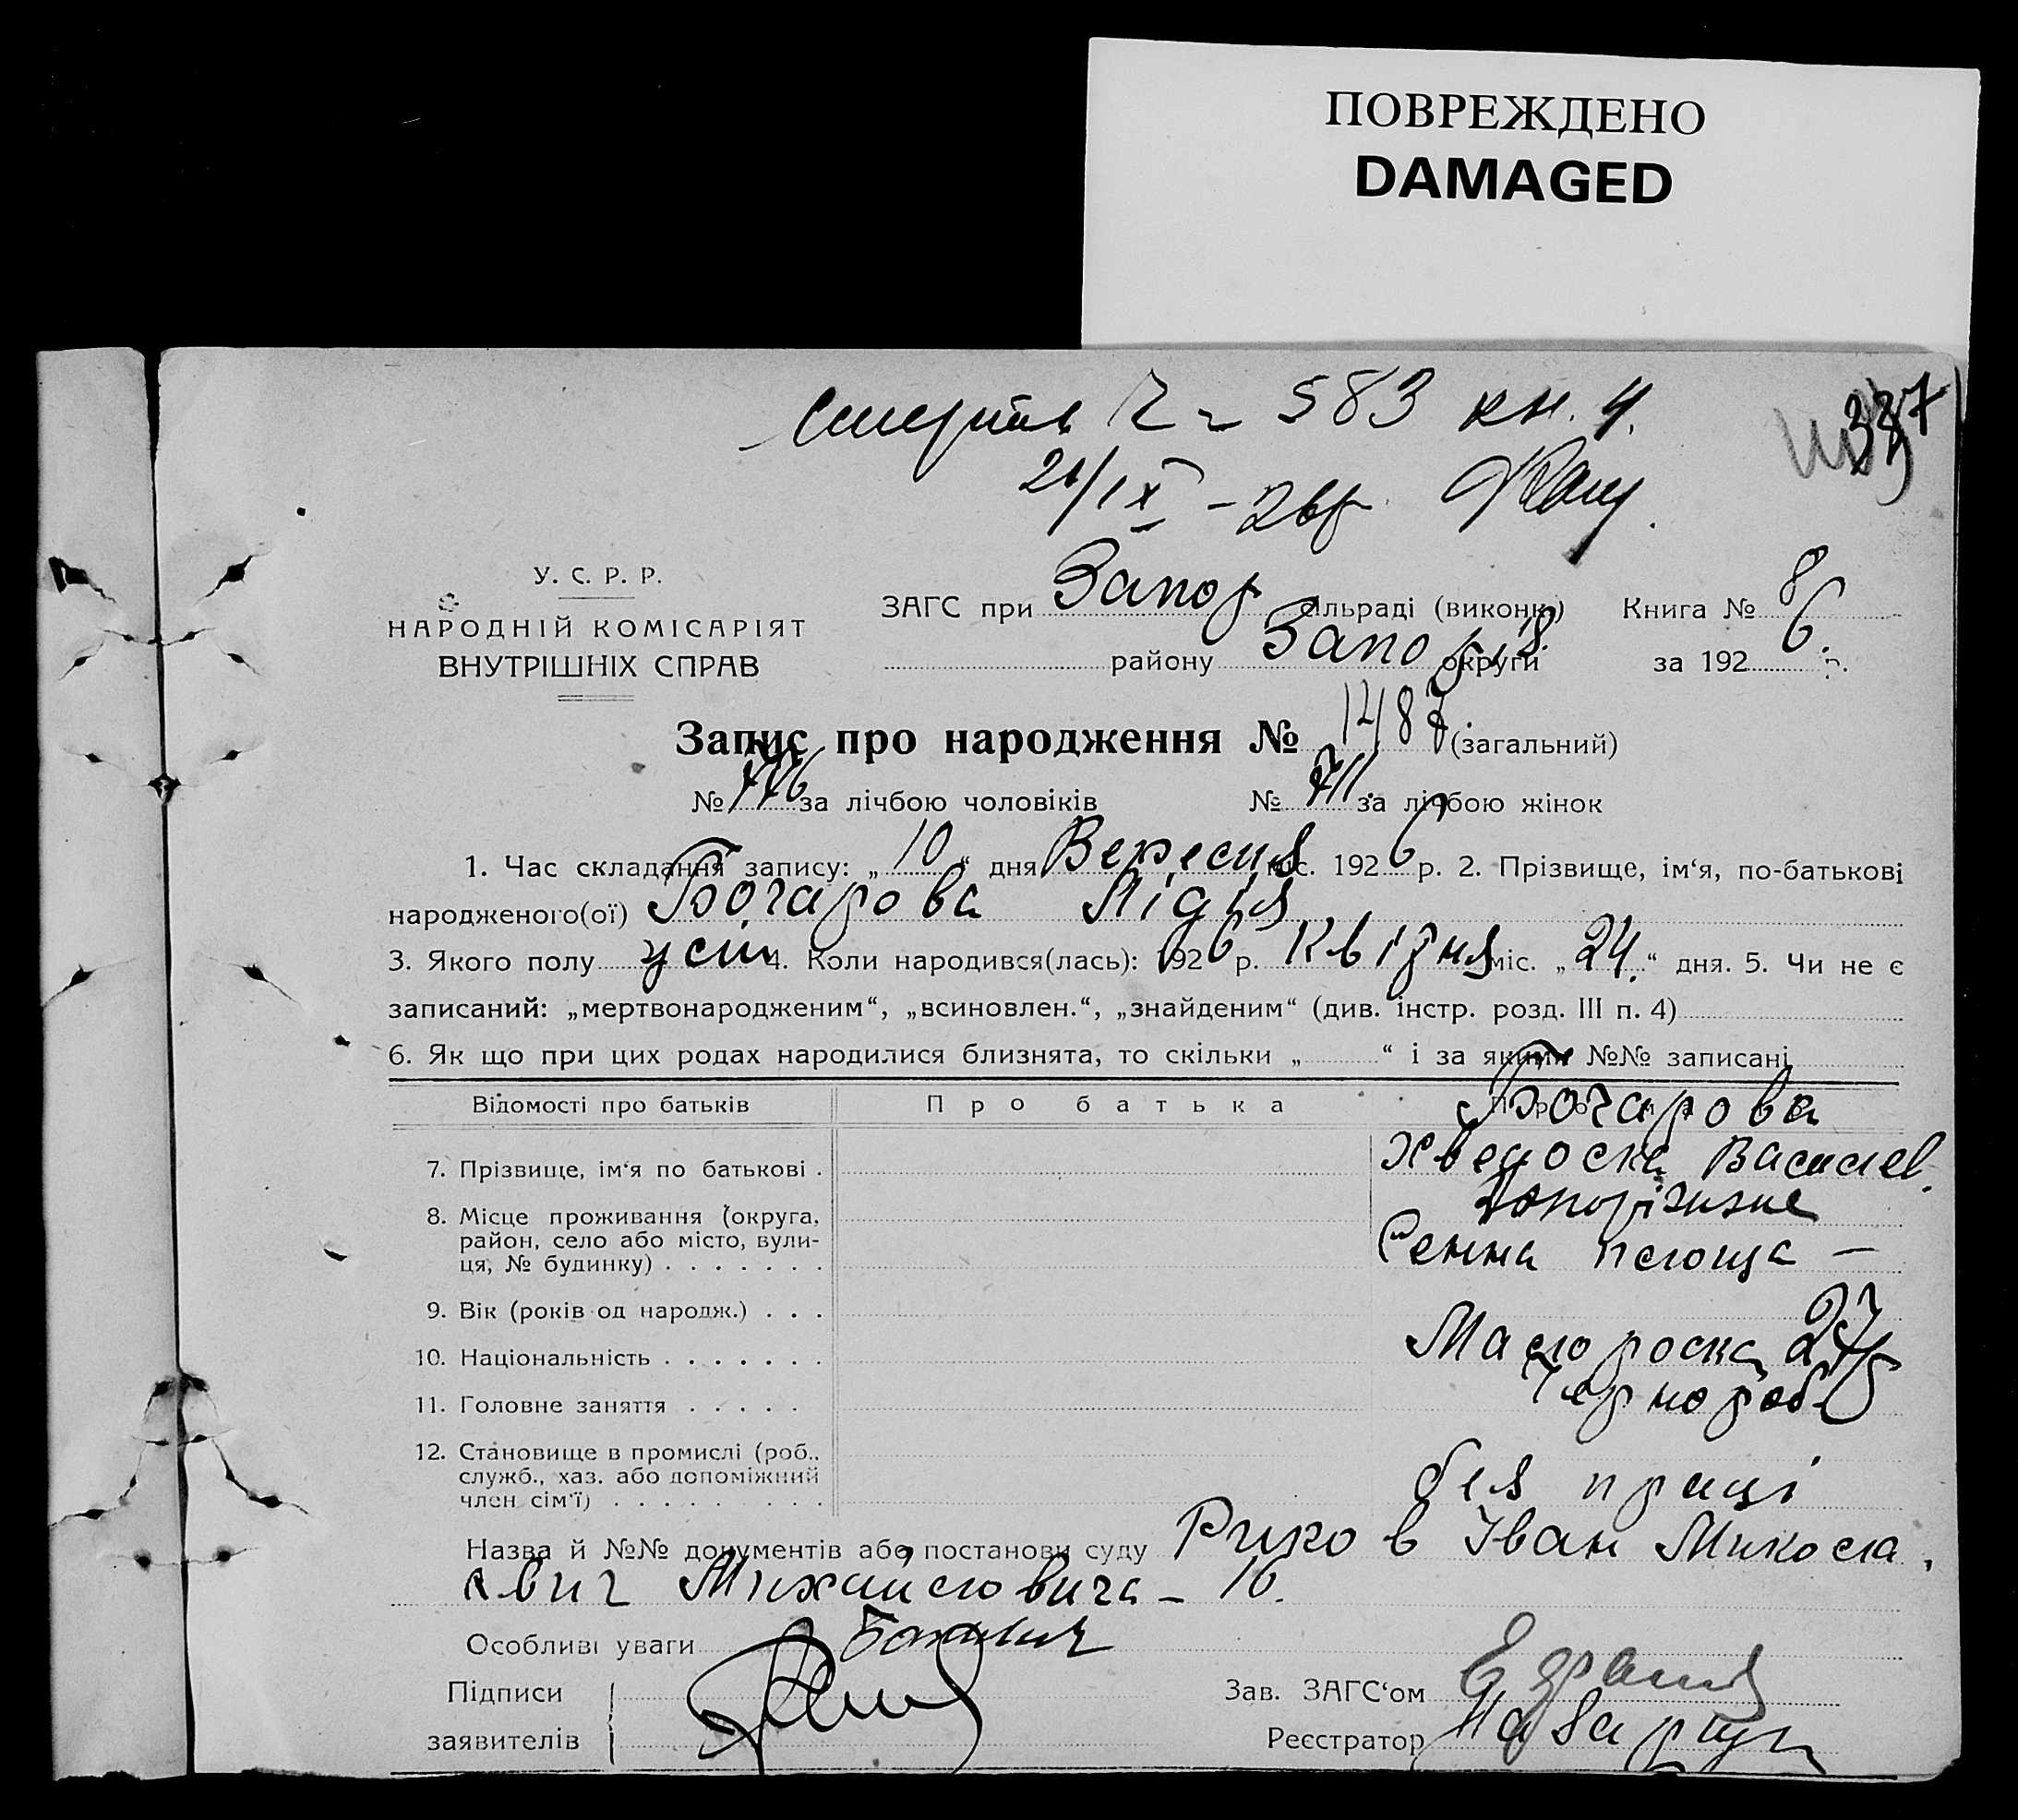 ПОВРЕЖДЕНО
DAMAGED
583 кн. 4.
337
У. С. Р. Р.
НАРОДНІЙ КОМІСАРІЯТ
ВНУТРІШНІХ СПРАВ
ЗАГС при Запор сільраді (виконк.) Книга № 8
району Запор округи за 1926 р.
Запис про народження № 1487 (загальний)
№ 776 за лічбою чоловіків № 711 за лічбою жінок
1. Час складання запису: „10“ дня Вересня міс. 1926 р. 2. Прізвище, ім‘я, по-батькові
народженого(ої) Бочарова Лідія
3. Якого полу 4. Коли народився(лась): 1926 р. Квізня міс. „24.“ дня. 5. Чи не є
записаний: „мертвонародженим“, „всиновлен.“, „знайденим“ (див. інстр. розд. III п. 4)
6. Як що при цих родах народилися близнята, то скільки „ “ і за якими №№ записані
Відомості про батьків Про батька Бочарова
7. Прізвище, ім‘я по батькові . Хведоска Василев.
8. Місце проживання (округа, Запоріжжє
район, село або місто, вули- Сенна площа —
ця, № будинку) . . . . . . .
9. Вік (років од народж.) . . . 27
10. Національність . . . . . . . Малороска
11. Головне заняття . . . . . Чорнороб
12. Становище в промислі (роб.,
служб., хаз. або допоміжний без праці
член сім‘ї) . . . . . . . . .
Назва й №№ документів або постанови суду Іван Микола
евич Михайловича – 16.
Особливі уваги
Підписи Зав. ЗАГС‘ом
заявителів Реєстратор